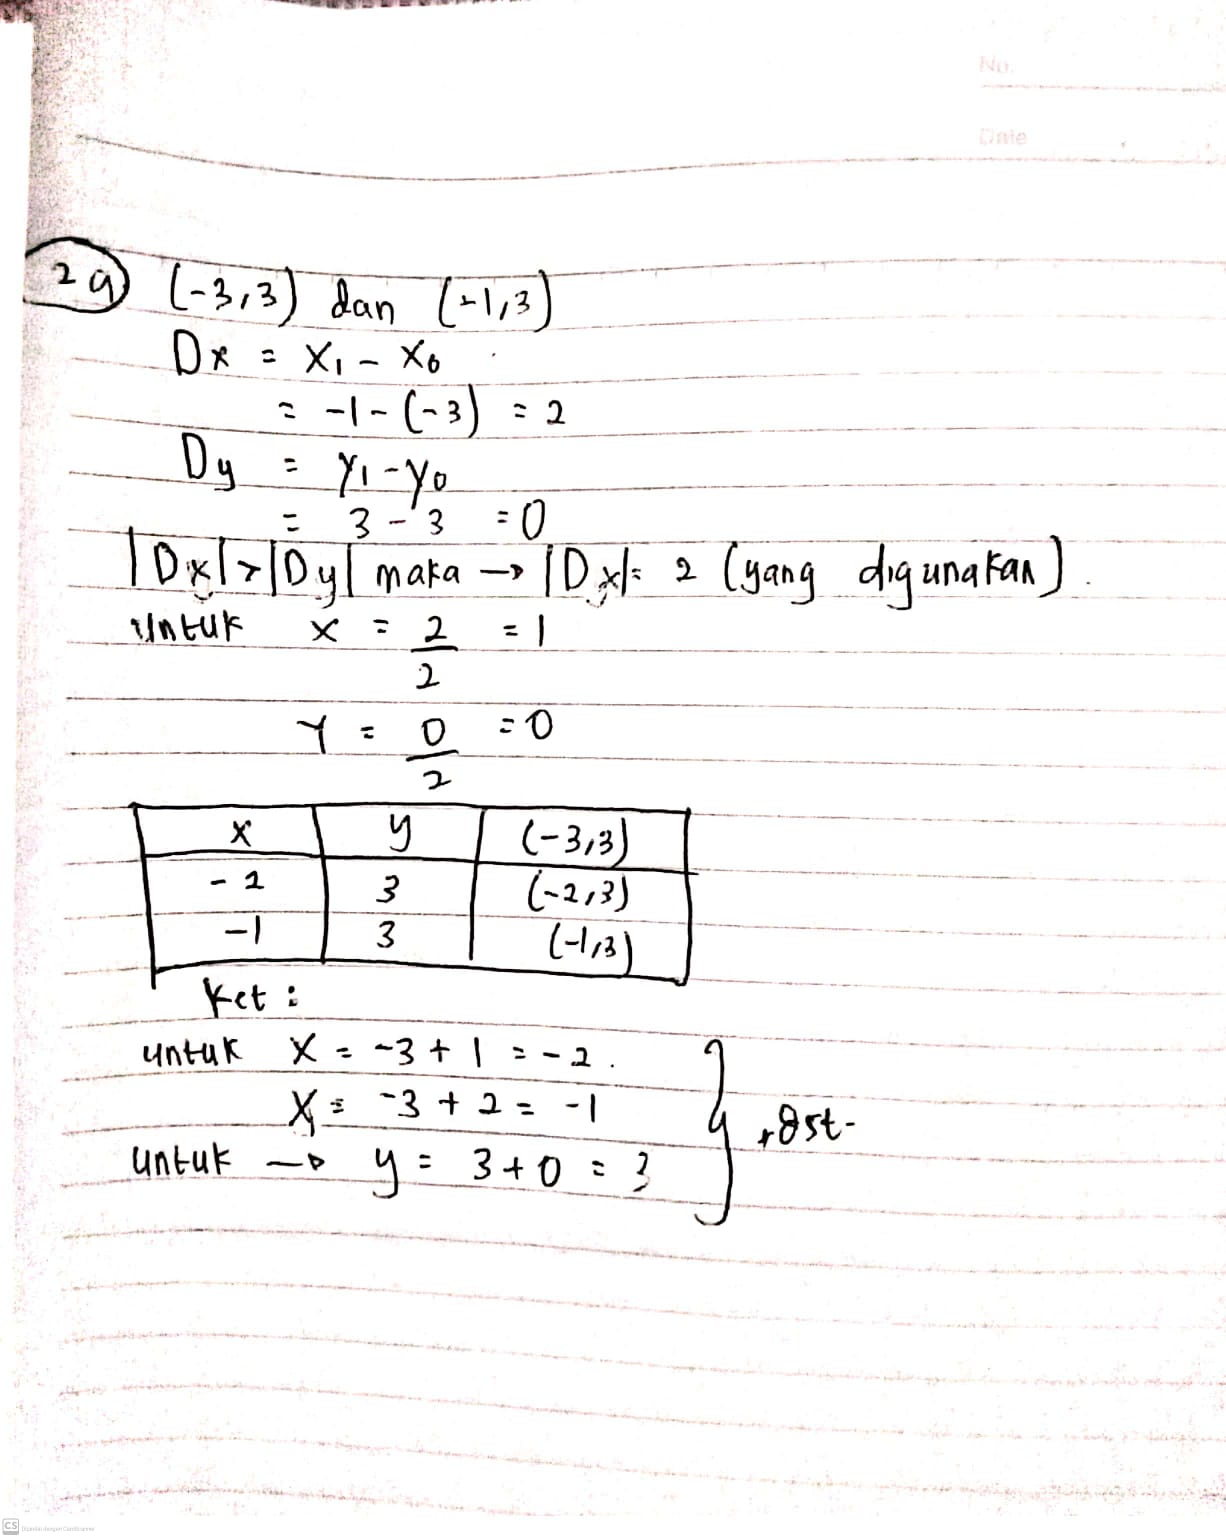 No.
Date
29) (-3,3) dan (-1,3)
Dx = X1 - X0
= -1 - (-3) = 2
Dy = Y1 - Y0
= 3 - 3 = 0
|Dx| > |Dy| maka → |Dx| = 2 (yang digunakan).
Untuk X = 2/2 = 1
Y = 0/2 = 0
x y (-3,3)
-2 3 (-2,3)
-1 3 (-1,3)
Ket :
untuk X = -3 + 1 = -2.
X = -3 + 2 = -1
untuk → y = 3 + 0 = 3
dst-
CS Dipindai dengan CamScanner